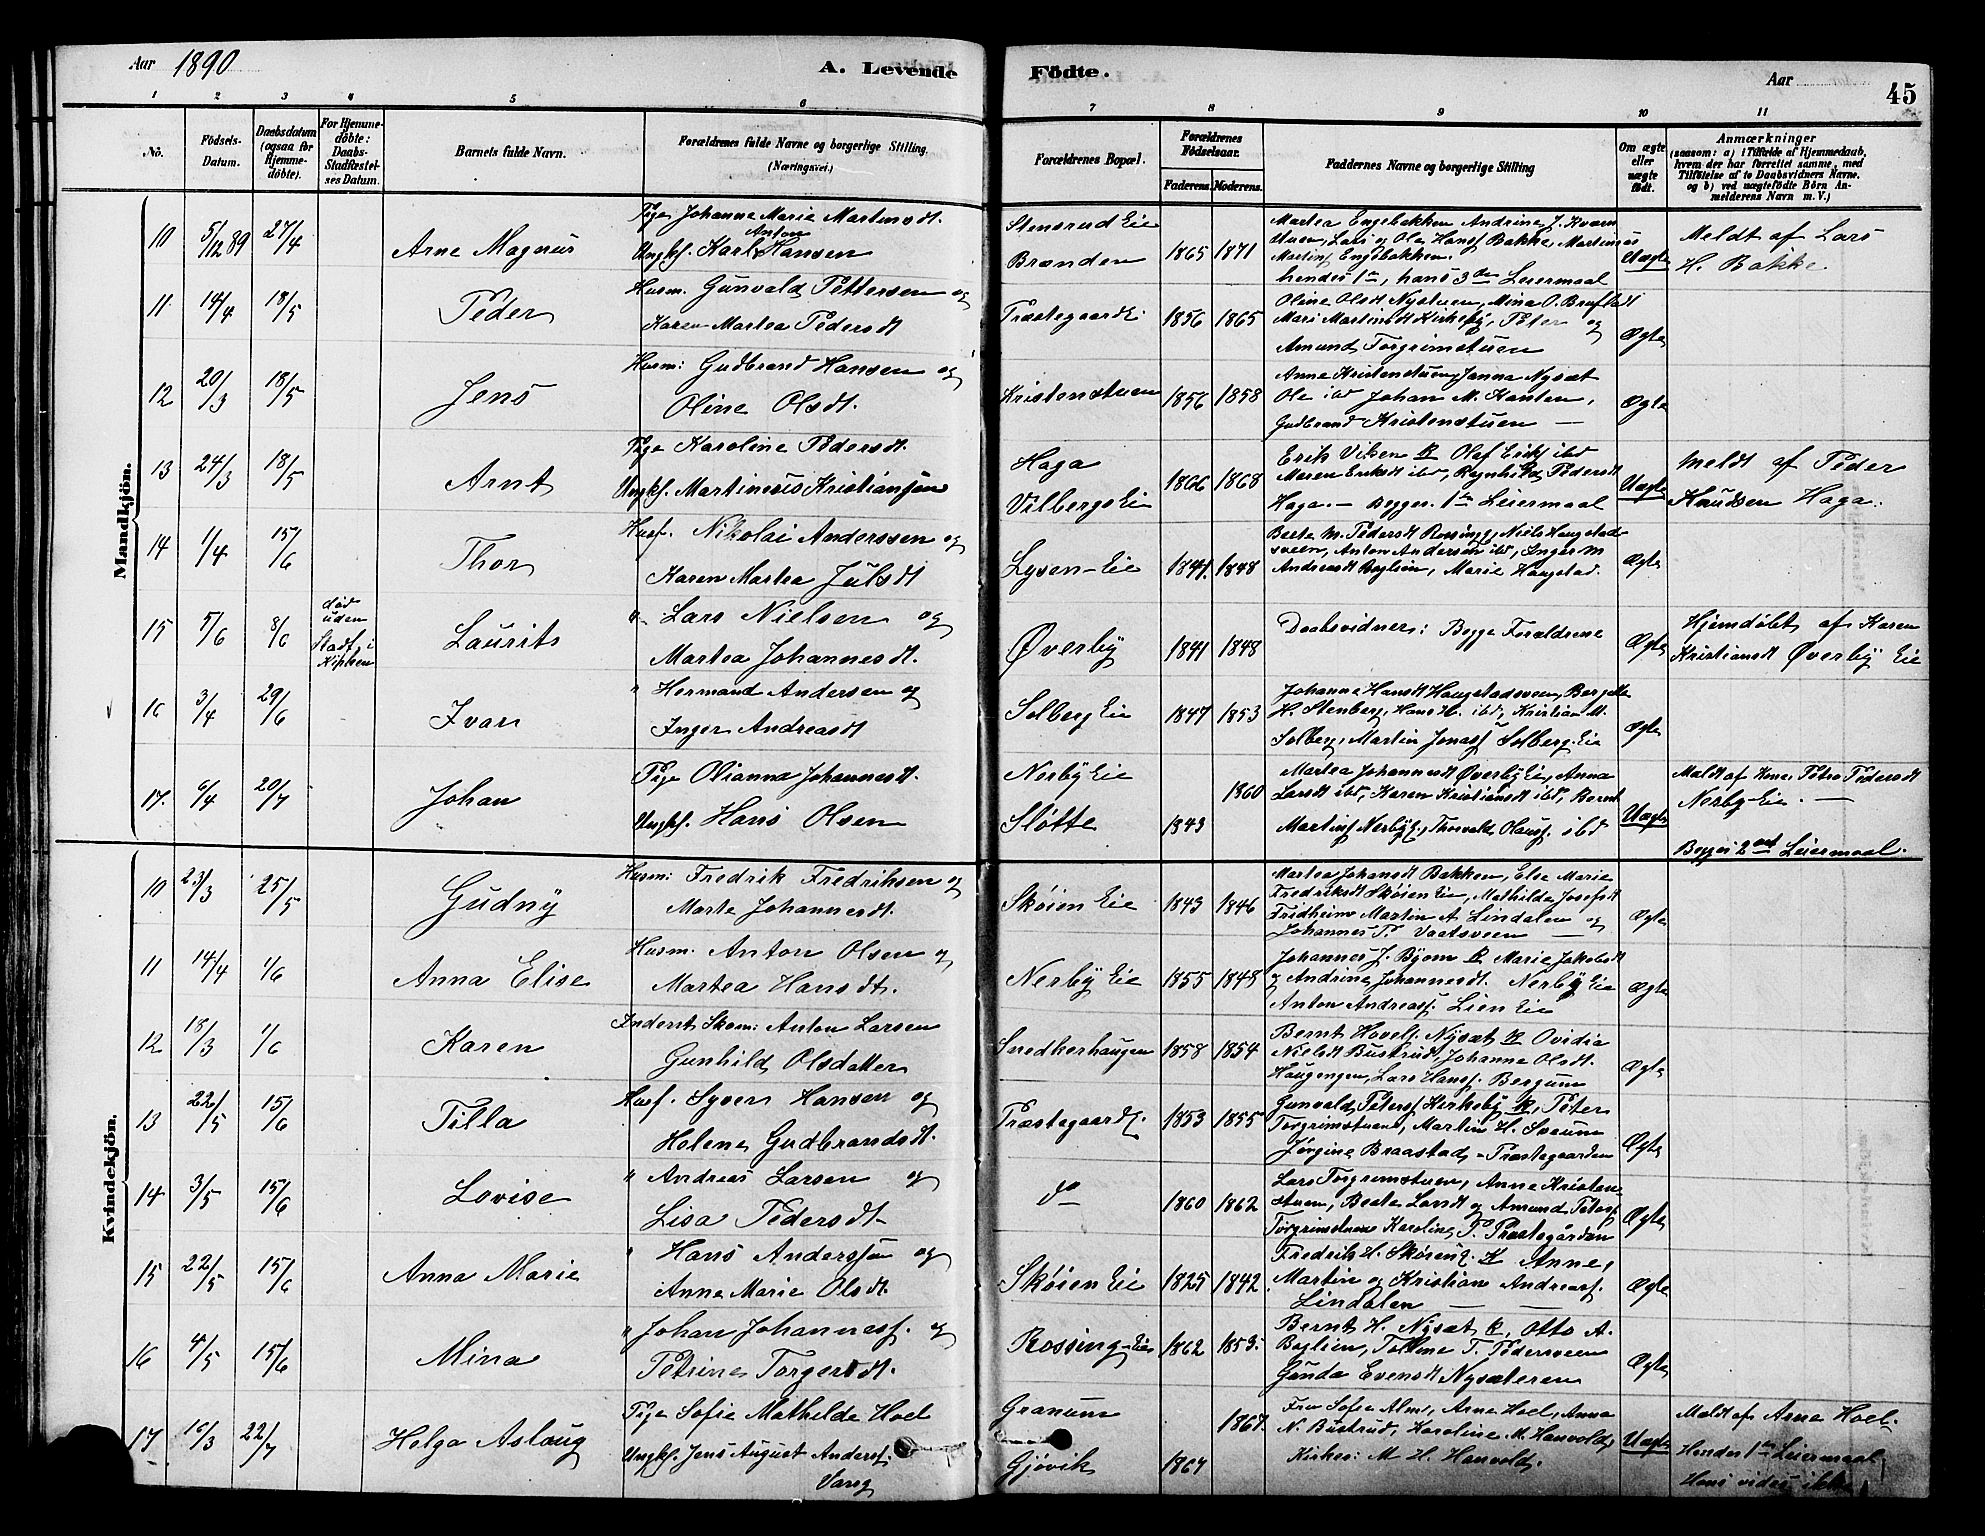 Aar 1890
A. Levende
Födte.
Aar
45
1
2
3
4
5
6
7
8
9
10
11
No.
Födsels-Datum.
Daabsdatum (ogsaa for Hjemme-döbte).
For Hjemme-döbte: Daabs-Stadfæstel-ses Datum.
Barnets fulde Navn.
Forældrenes fulde Navne og borgerlige Stilling (Næringsvei.)
Forældrenes Bopæl.
Forældrenes Födselsaar.
Faderens. Moderens.
Faddernes Navne og borgerlige Stilling
Om ægte eller uægte födt.
Anmærkninger
(saasom: a) i Tilfælde af Hjemmedaab, hvem der har forrettet samme, med Tilföielse af to Daabsvidners Navne. og b) ved uægtefödte Börn An-melderens Navn m. V.)
Mandkjön.
10 5/12 89 27/4 Arne Magnus
Pige Johanne Marie Martinsdt.
Ungkf. Karl Anton Hansen
Stensrud Eie
Brænden 1865 1871
Martea Engebakken Andrine J. Kværn
stuen, Lars og Ole Hansf Bakke, Martinus
Martinf Engebakken.
hendes 1te, hans 3die Leiermaal
Uægte
Meldt af Lars
H. Bakke.
11 14/4 18/5 Peder
Husm. Gunvald Pettersen og
Karen Martea Pedersdt
Præstegaard Ei 1856 1865
Oline Olsdt Nystuen, Mina O. Brufladt
Mari Martinsdt Kirkeby, Peter og
Amund Torgrimstuen
Ægte
12 20/3 18/5 Jens
Husm: Gudbrand Hansen og
Oline Olsdt.
Kristenstuen 1856 1858
Anne Kristenstuen, Janna Nysæt
Ole ibd Johan M. Kanten,
Gudbrand Kristenstuen
Ægte
13 24/3 18/5 Arnt
Pige Karoline Pedersdt.
Ungkf. Martinus Kristiansen
Haga
Vilbergs Eie 1866 1868
Erik Viken K Olaf Erikf ibd
Maren Eriksdt ibd, Ragnhild Pedersdt
Haga. — Begges 1te Leiermaal
Uægte
Meldt af Peder
Knudsen Haga.
14 1/4 15/6 Thor
Husf. Nikolai Anderssen og
Karen Martea Julsdt
Lysen-Eie 1841. 1848
Beate M. Pedersdt Rossing, Niels Haugstad-
sveen, Anton Andersen ibd, Inger M
Andreasdt Boglien, Marie Haugstad.
Ægte
15 5/6 8/6 død uden Stadf. i Kirken Laurits
" Lars Nielsen og
Martea Johannesdt.
Øverby 1841 1848
Daabsvidner: Begge Forældrene
Ægte
Hjemdøbt af Karen
Kristiansdt Øverby Eie
16 3/4 29/6 Ivar
" Hermand Andersen og
Inger Andreasdt
Solberg Eie 1847 1853
Johanne Hansdt Haugstadsveen, Bergitte
H. Stenberg, Hans H. ibd, Kristian M.
Solberg, Martin Jonasf Solberg Eie
Ægte
17. 6/4 20/7 Johan
Pige Olianna Johannesdt.
Ungkf. Hans Olsen
Nerby Eie 1860
Sløtte 1843
Martea Johannesdt Øverby Eie, Anna
Larsdt ibd, Karen Kristiansdt ibd, Bernt
Martinf Nerbye, Thorvald Olausf. ibd
Uægte
Meldt af Kone Petra Pedersdt
Nerby-Eie. —
Begges 2det Leiermaal.
Kvindekjön.
10 23/3 25/5 Gudny
Husm: Fredrik Fredriksen og
Marte Johannesdt.
Skøien Eie 1843 1846
Martea Johansdt Bakken, Else Marie
Fredriksdt Skøien Eie, Mathilde Josefsdt
Fridheim Martin A Lindalen og
Johannes P. Vaatsveen
Ægte
11 14/4 1/6 Anna Elise
Husm. Anton Olsen og
Martea Hansdt.
Nerby Eie 1855 1848
Johannes J. Byom K Marie Jakobsdt
og Andrine Johannesdt. Nerby Eie
Anton Andreasf. Lien Eie
Ægte
12 18/3 1/6 Karen
Inderst Skom: Anton Larsen
Gunhild Olsdatter
Snedkerhaugen 1858 1854
Bernt Hovelf. Nysæt K Ovidia
Nielsdt Bustrud, Johanne Olsdt.
Haugengen, Lars Hansf. Bergum
Ægte
13 22/5 15/6 Tilla
Husf. Syver Hansen og
Helene Gudbrandsdt.
Præstegaard 1853 1855
Gunvald Petersf Kirkeby K, Peter
Torgrimstuen, Martin H. Sveum
Jørgine Braastad - Præstegaarden
Ægte
14 3/5 15/6 Lovise
" Andreas Larsen og
Lisa Pedersdt
do 1860 1862
Lars Torgrimstuen, Anne Kristen-
stuen, Beate Larsdt og Amund Petersf
Torgrimstuen Karoline P. Præstegården
Ægte
15 22/5 15/6 Anna Marie
" Hans Andersen og
Anne Marie Olsdt.
Skøien Eie 1825 1842
Fredrik H. Skøien K Anne,
Martin og Kristian Andreasf.
Lindalen
Ægte
16 4/5 15/6 Mina
" Johan Johannesf. og
Petrine Torgersdt.
Rossing-Eie 1862 1853.
Bernt H. Nysæt K, Otto A.
Boglien, Tolline T. Pedersveen
Gunda Evensdt Nysæteren
Ægte
17 16/3 22/7 Helga Aslaug
Pige Sofie Mathilde Hoel
Ungkf. Jens August Andersf.
Vang
Granum 1867.
Gjøvik 1864
Fru Sofie Alm, Arne Hoel, Anna
N. Bustrud, Karoline M. Hanvold,
Kirkes: M H. Hanvold.
Uægte
Meldt af Arne Hoel.
Hendes 1te Leiermaal
Hans vides ikke